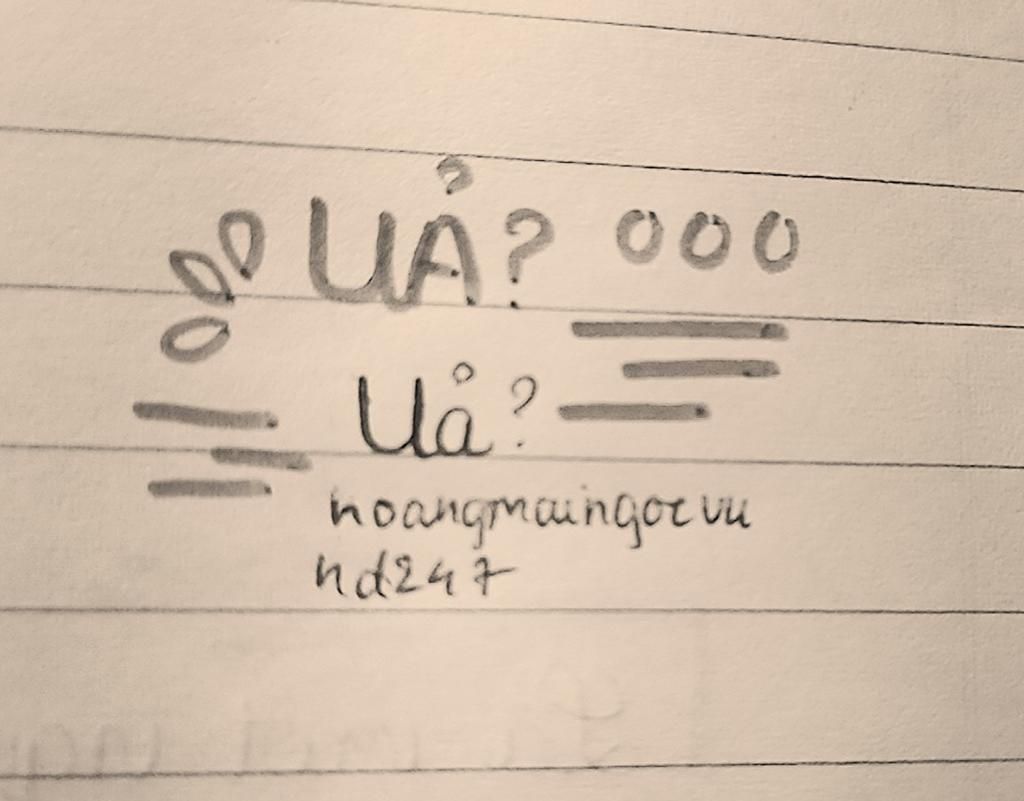 UẢ? 000
Uả?
hoangmaingocvu
hd247